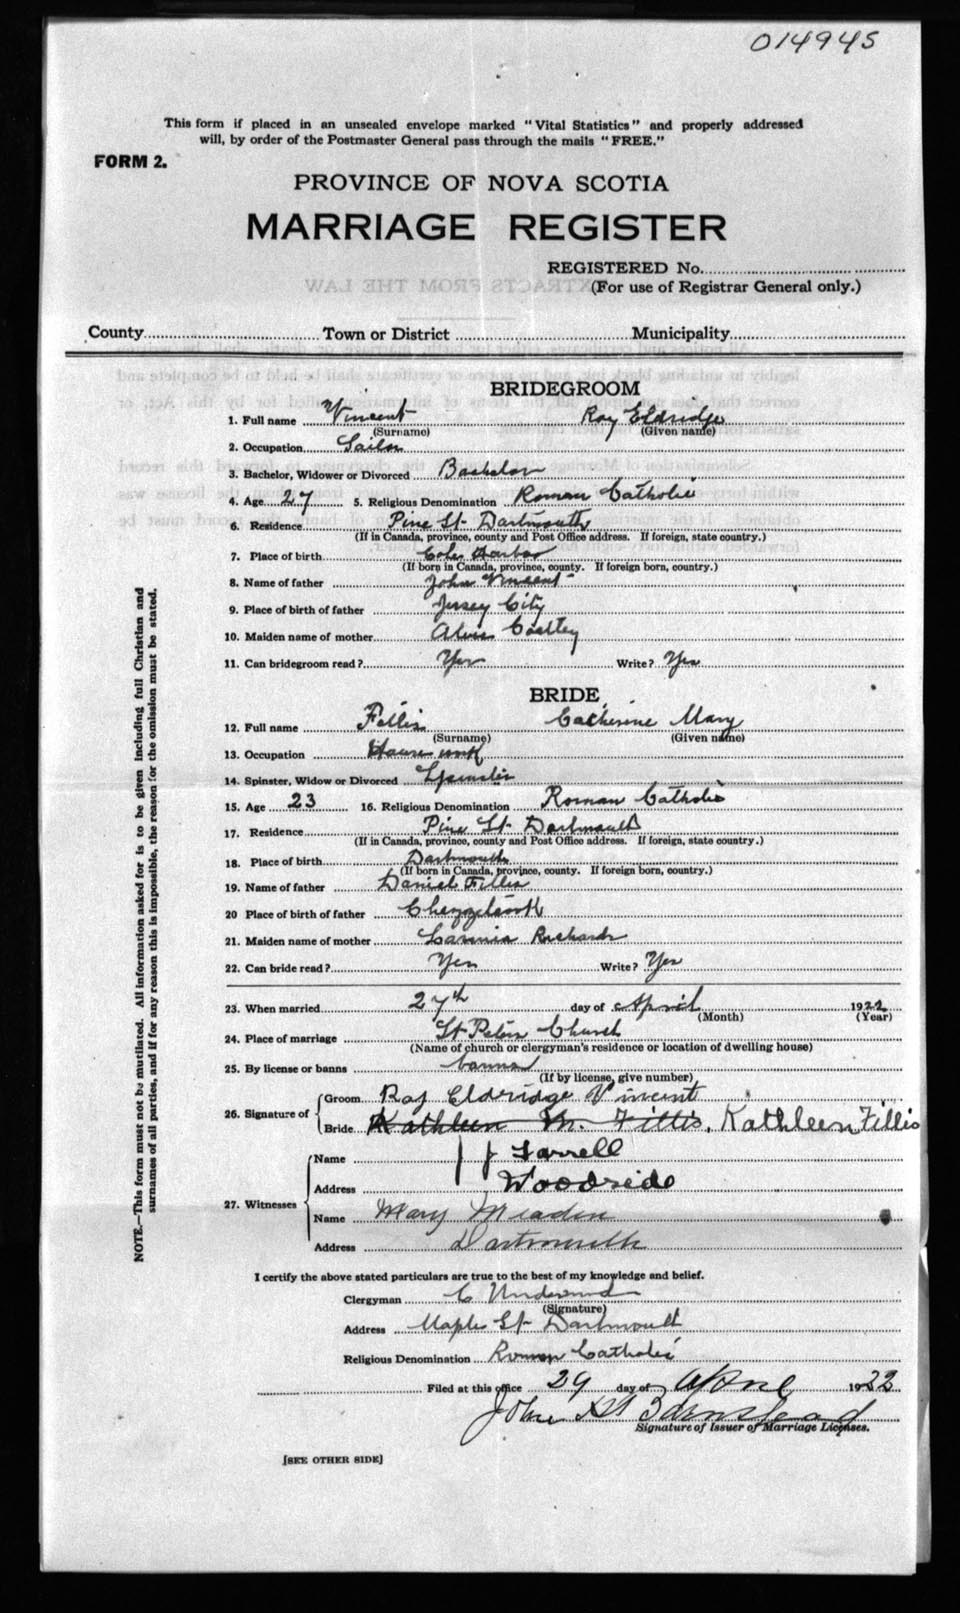 014945
This form if placed in an unsealed envelope marked "Vital Statistics" and properly addressed
will, by order of the Postmaster General pass through the mails "FREE."
FORM 2.
PROVINCE OF NOVA SCOTIA
MARRIAGE REGISTER
REGISTERED No.
(For use of Registrar General only.)
County Town or District Municipality
BRIDEGROOM
1. Full name Vincent Roy Eldridge
(Surname) (Given name)
2. Occupation Sailor
3. Bachelor, Widower or Divorced Bachelor
4. Age 27 5. Religious Denomination Roman Catholic
6. Residence Pine St. Dartmouth
(If in Canada, province, county and Post Office address. If foreign, state country.)
7. Place of birth Cole Harbor
(If born in Canada, province, county. If foreign born, country.)
8. Name of father John Vincent
9. Place of birth of father Jersey City
10. Maiden name of mother
11. Can bridegroom read? Yes Write? Yes
BRIDE
12. Full name Fillis Catherine Mary
(Surname) (Given name)
13. Occupation House work
14. Spinster, Widow or Divorced Spinster
15. Age 23 16. Religious Denomination Roman Catholic
17. Residence Pine St. Dartmouth
(If in Canada, province, county and Post Office address. If foreign, state country.)
18. Place of birth Dartmouth
(If born in Canada, province, county. If foreign born, country.)
19. Name of father Daniel Fillis
20 Place of birth of father Chezzetcook
21. Maiden name of mother Richards
22. Can bride read? Yes Write? Yes
23. When married 27th day of April 1922
(Month) (Year)
24. Place of marriage St Peters Church
(Name of church or clergyman's residence or location of dwelling house)
25. By license or banns banns
(If by license, give number)
26. Signature of Groom Roy Eldridge Vincent
Bride Kathleen M. Fillis. Kathleen Fillis
27. Witnesses Name J J Farrell
Address Woodside
Name Mary
Address Dartmouth
I certify the above stated particulars are true to the best of my knowledge and belief.
Clergyman C Underwood
(Signature)
Address Maple St. Dartmouth
Religious Denomination Roman Catholic
Filed at this office 29 day of April 1922
John Barnstead
Signature of Issuer of Marriage Licenses.
[SEE OTHER SIDE]
NOTE.—This form must not be mutilated. All information asked for is to be given including full Christian and
surnames of all parties, and if for any reason this is impossible, the reason for the omission must be stated.